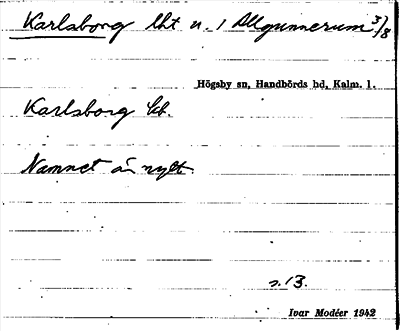 Karlsborg lht u. 1 Allgunnerum 3/8
Högsby sn, Handbörds hd, Kalm. l.
Karlsborg kb.
Namnet är nytt.
s. 13.
Ivar Modéer 1942